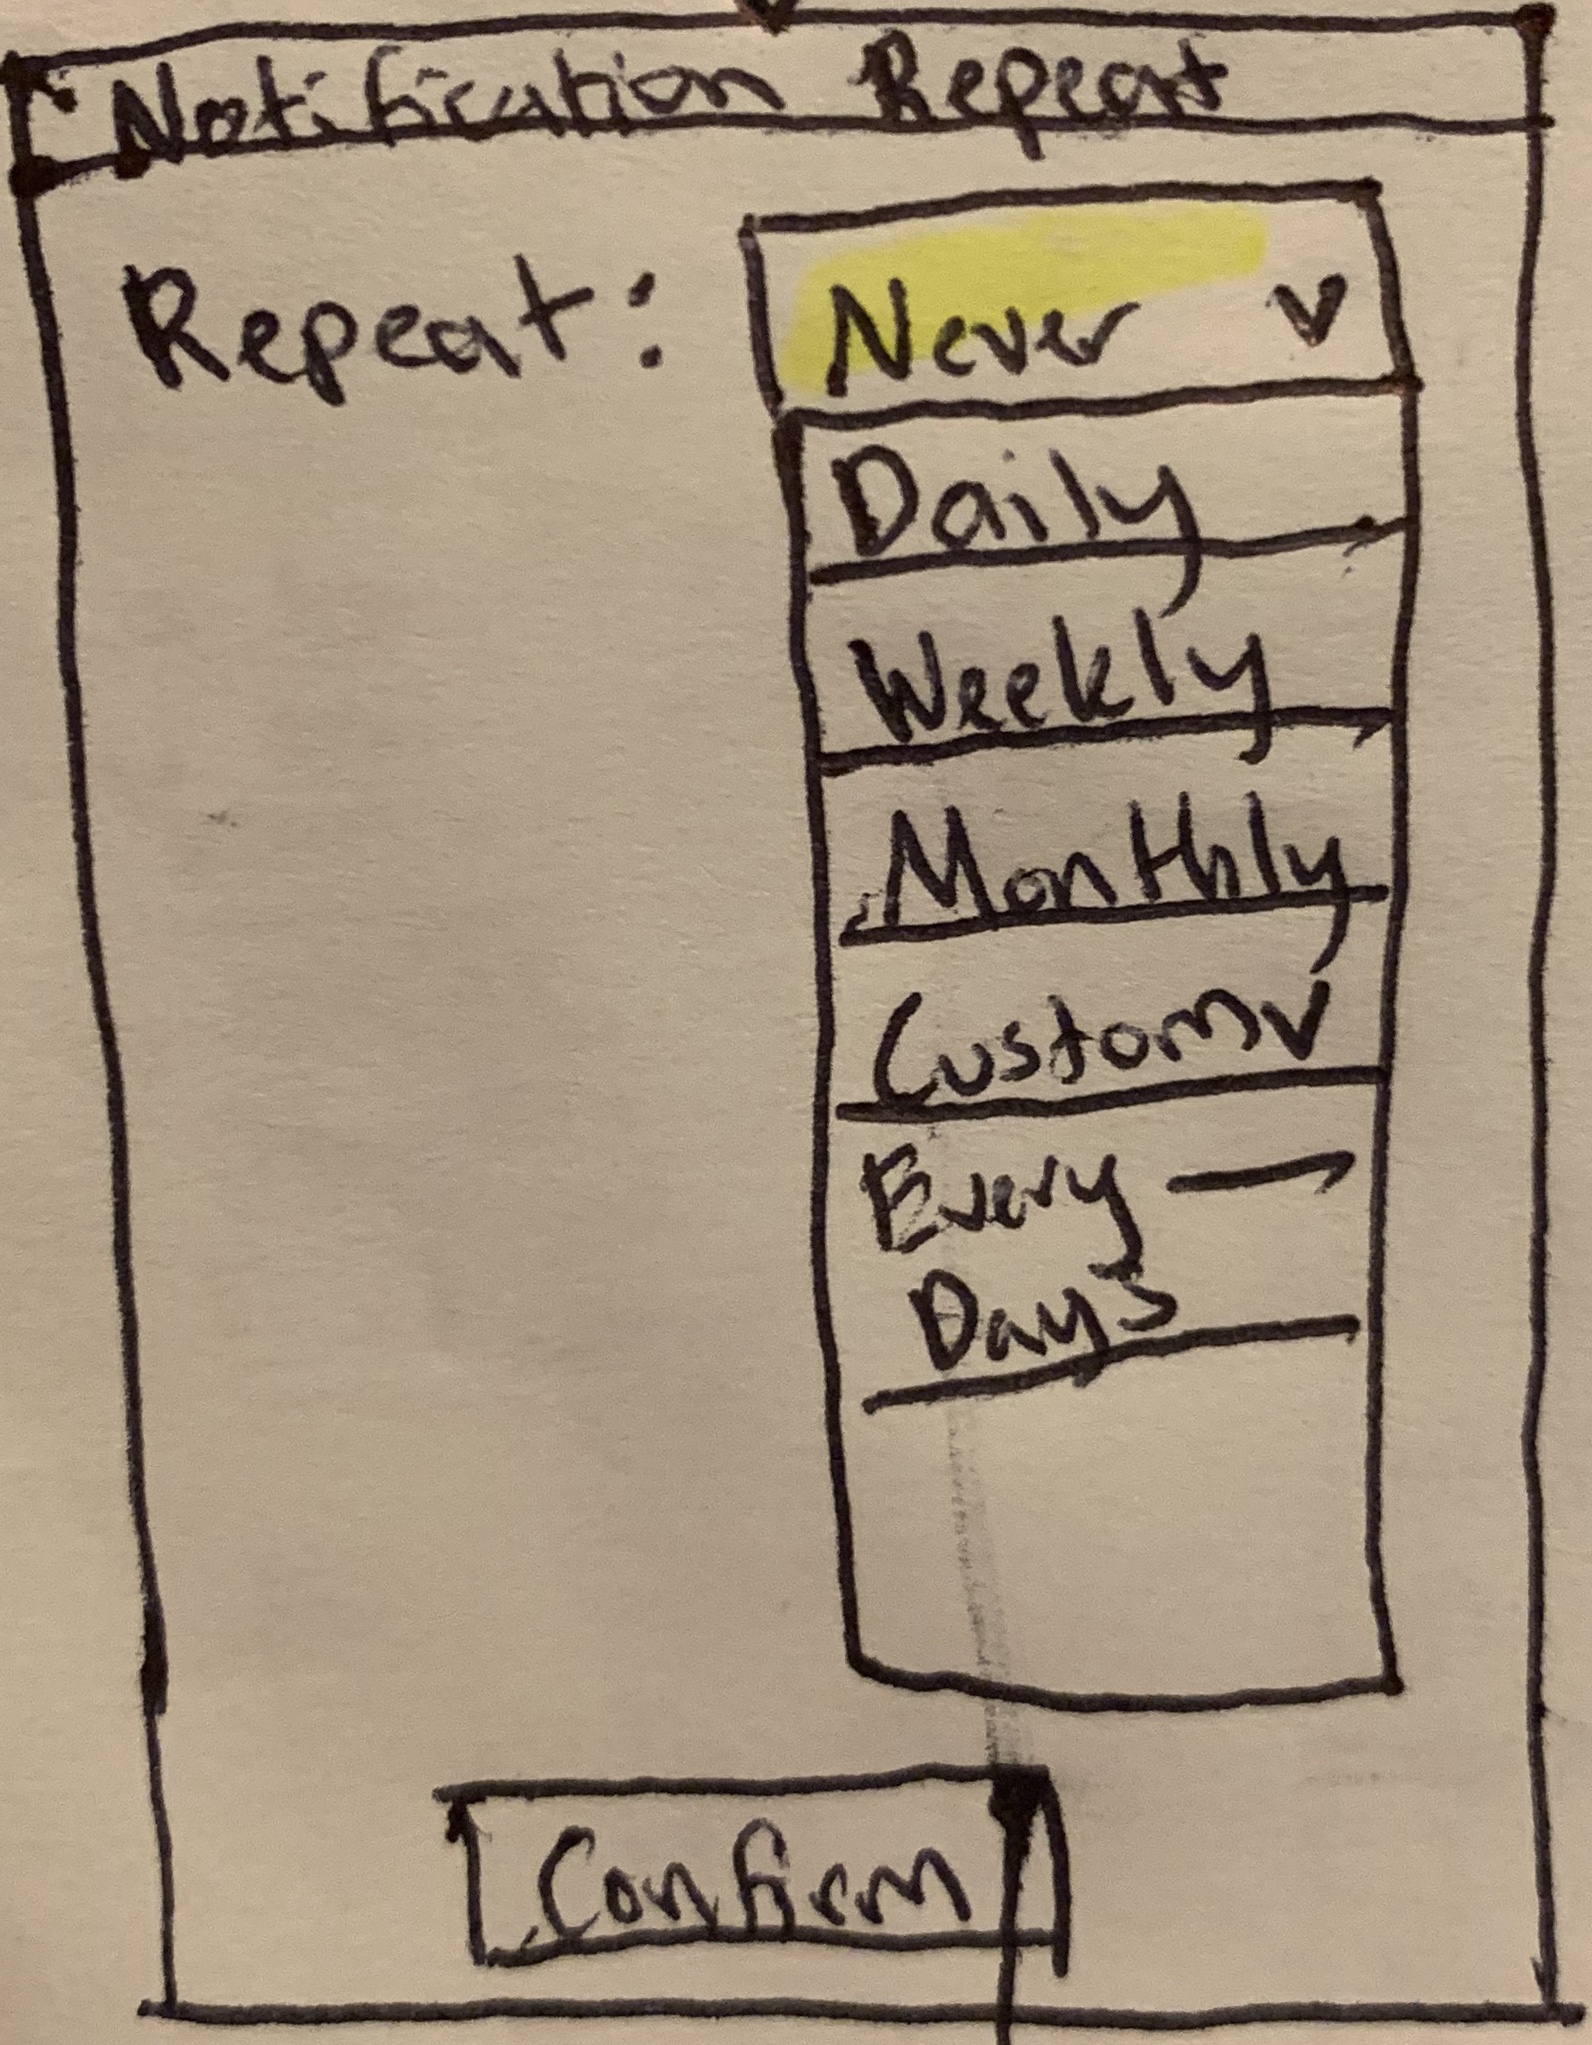 Notification Repeat
Repeat: Never
Daily
Weekly
Monthly
Custom
Every
Days
Confirm